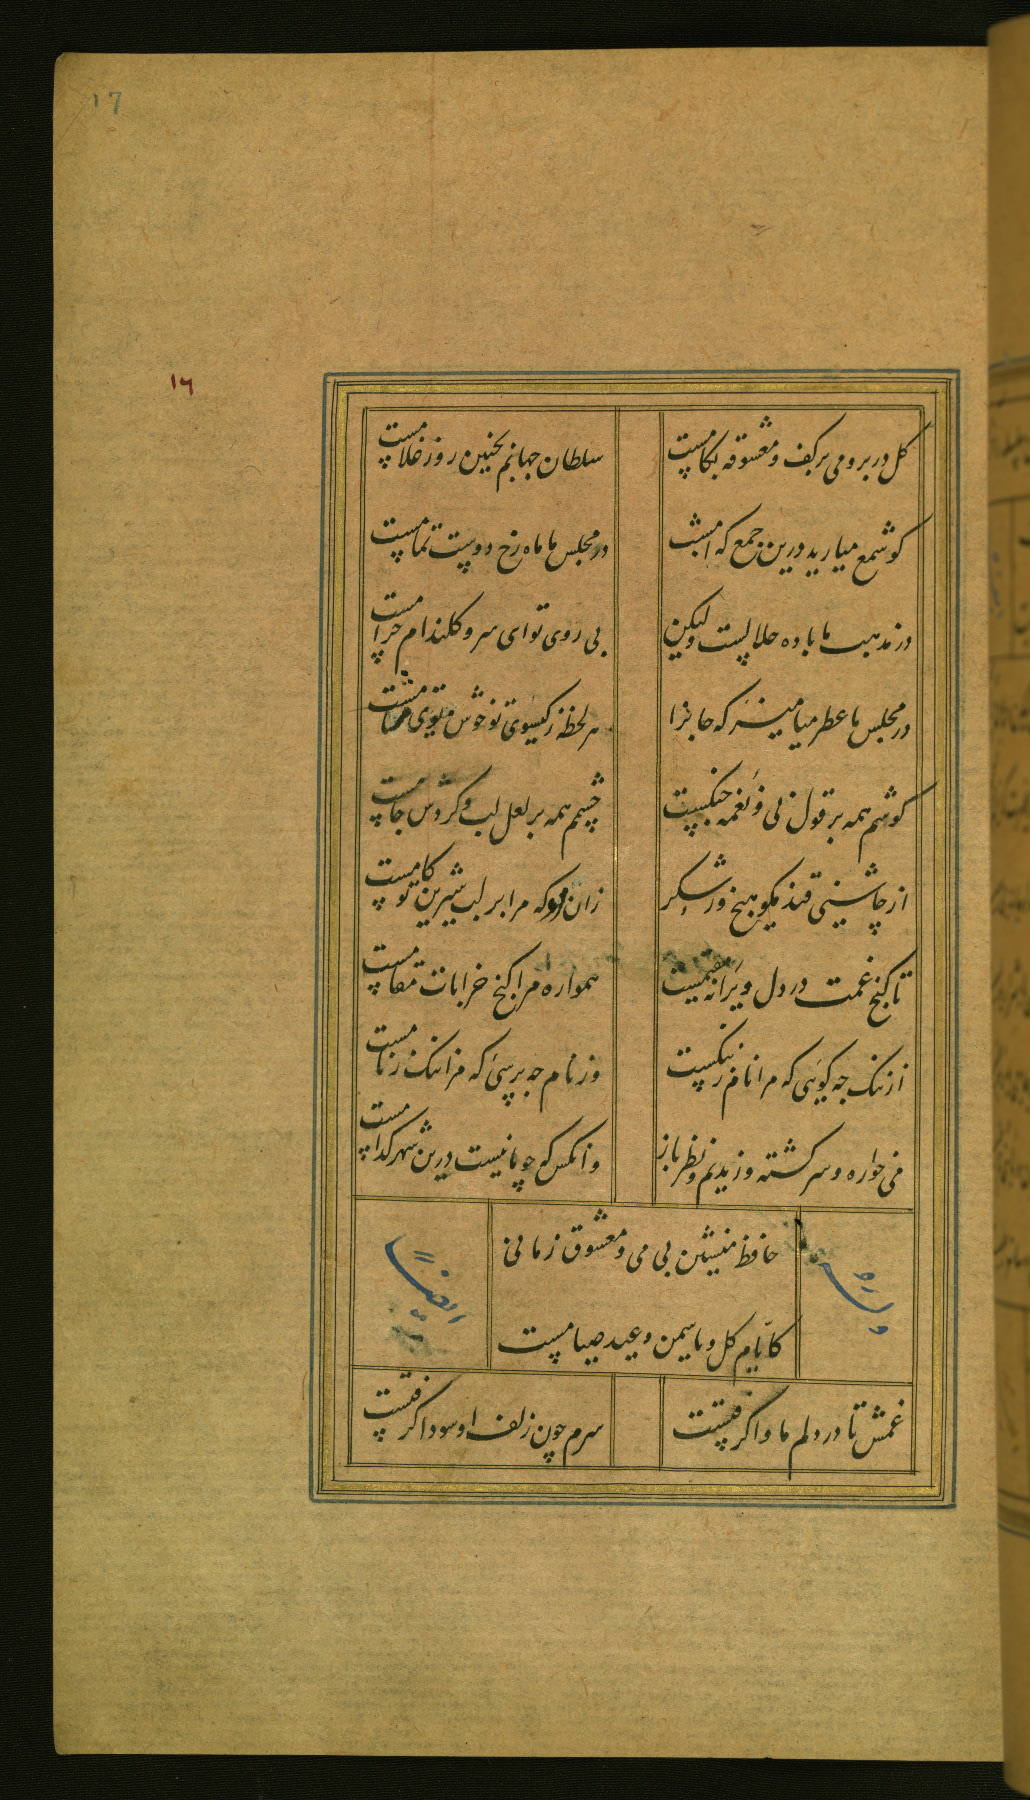 ۱۷
۱۶
کل در بر و می بر کف و معشوقه بکامست
سلطان جهانم بچنین روز غلامست
کو شمع میارید درین جمع که امشب
در مجلس ما ماه رخ دوست تمامست
در مذهب ما باده حلالست ولیکن
بی روی تو ای سرو کلندام حرامست
در مجلس ما عطر میامیز که جانرا
هر لحظه ز کیسوی تو خوش بوی مشامست
کوشم همه بر قول نی و نغمه چنکست
چشم همه بر لعل لب و کردش جامست
از چاشنی قند مکو هیچ و ز شکر
زان رو که مرا بر لب شیرین تو کامست
تا کنج غمت در دل ویرانه مقیمست
همواره مرا کنج خرابات مقامست
از ننک چه کوئی که مرا نام ز ننکست
وز نام چه پرسی که مرا ننک ز نامست
می خواره و سرکشته و رندیم و نظرباز
وانکس که چو ما نیست درین شهر کدامست
حافظ منشین بی می و معشوق زمانی
کایام کل و یاسمن و عید صیامست
وله
ایضا
غمش تا در دلم ماوا کرفتست
سرم چون زلف او سودا کرفتست